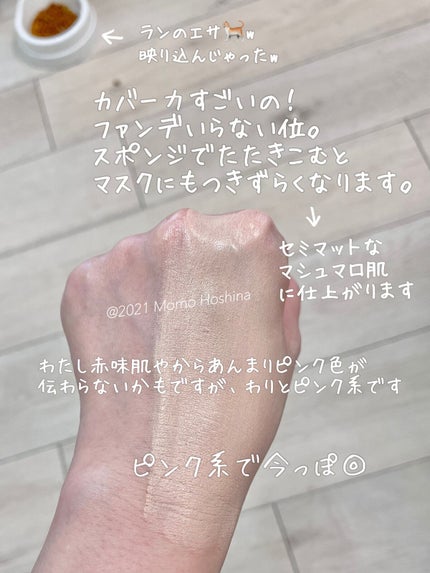 ランのエサ🐈w
映り込んじゃったw
カバー力すごいの！
ファンデいらない位。
スポンジでたたきこむと
マスクにもつきずらくなります。
セミマットな
マシュマロ肌
に仕上がります
@2021 Momo Hoshina
わたし赤味肌やからあんまりピンク色が
伝わらないかもですが、わりとピンク系です
ピンク系で今っぽ◎